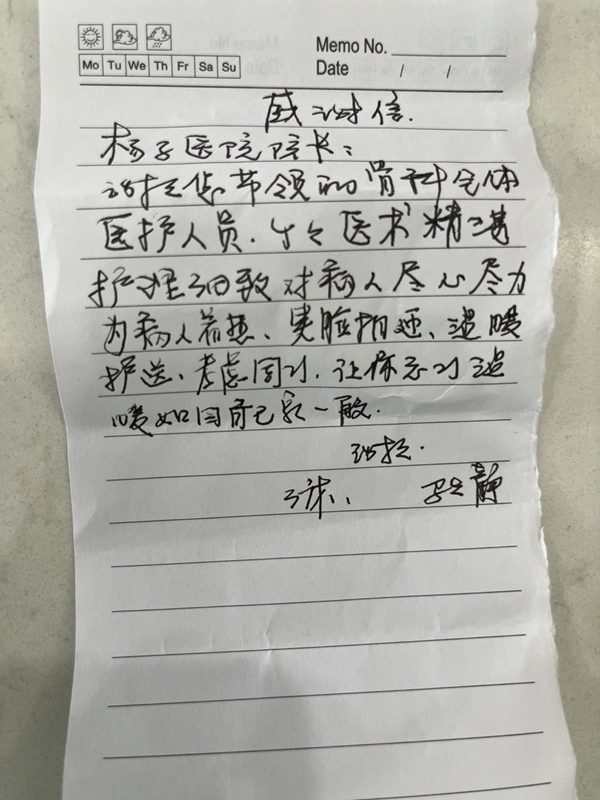 Memo No.
Mo Tu We Th Fr Sa Su
Date / /
感谢信.
杨子医院院长:
谢谢您带领的骨科全体
医护人员.个个医术精湛
护理细致对病人尽心尽力
为病人着想、笑脸相迎、温暖
护送、考虑周到.让你感到温
暖如同自己家一般.
谢谢.
静